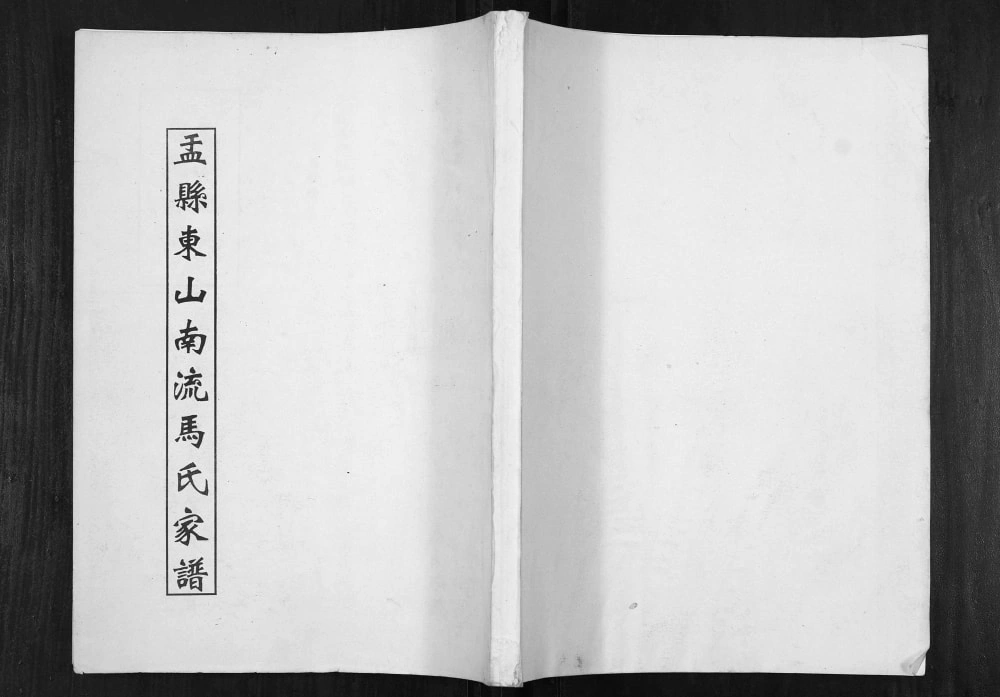 盂縣東山南流馬氏家譜